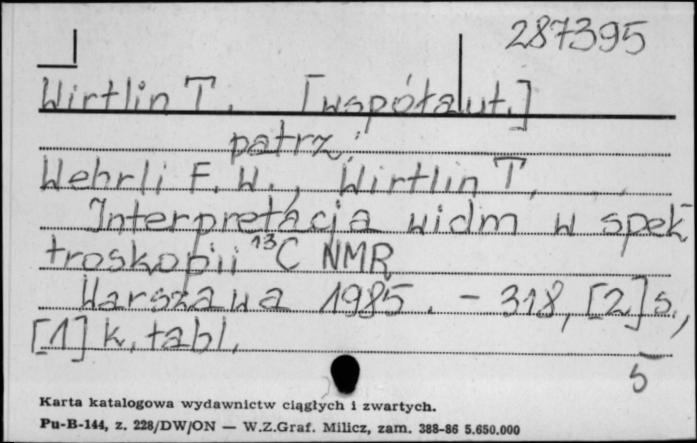 287395
Wirtlin T. [współaut.]
patrz:
Wehrli F. W., Wirtlin T.
Interpretacja widm w spek
troskopii ¹³C NMR
Warszawa 1985. - 318, [2] s.,
[1] k. tabl.
5
Karta katalogowa wydawnictw ciągłych i zwartych.
Pu-B-144, z. 228/DW/ON — W.Z.Graf. Milicz, zam. 388-86 5.650.000